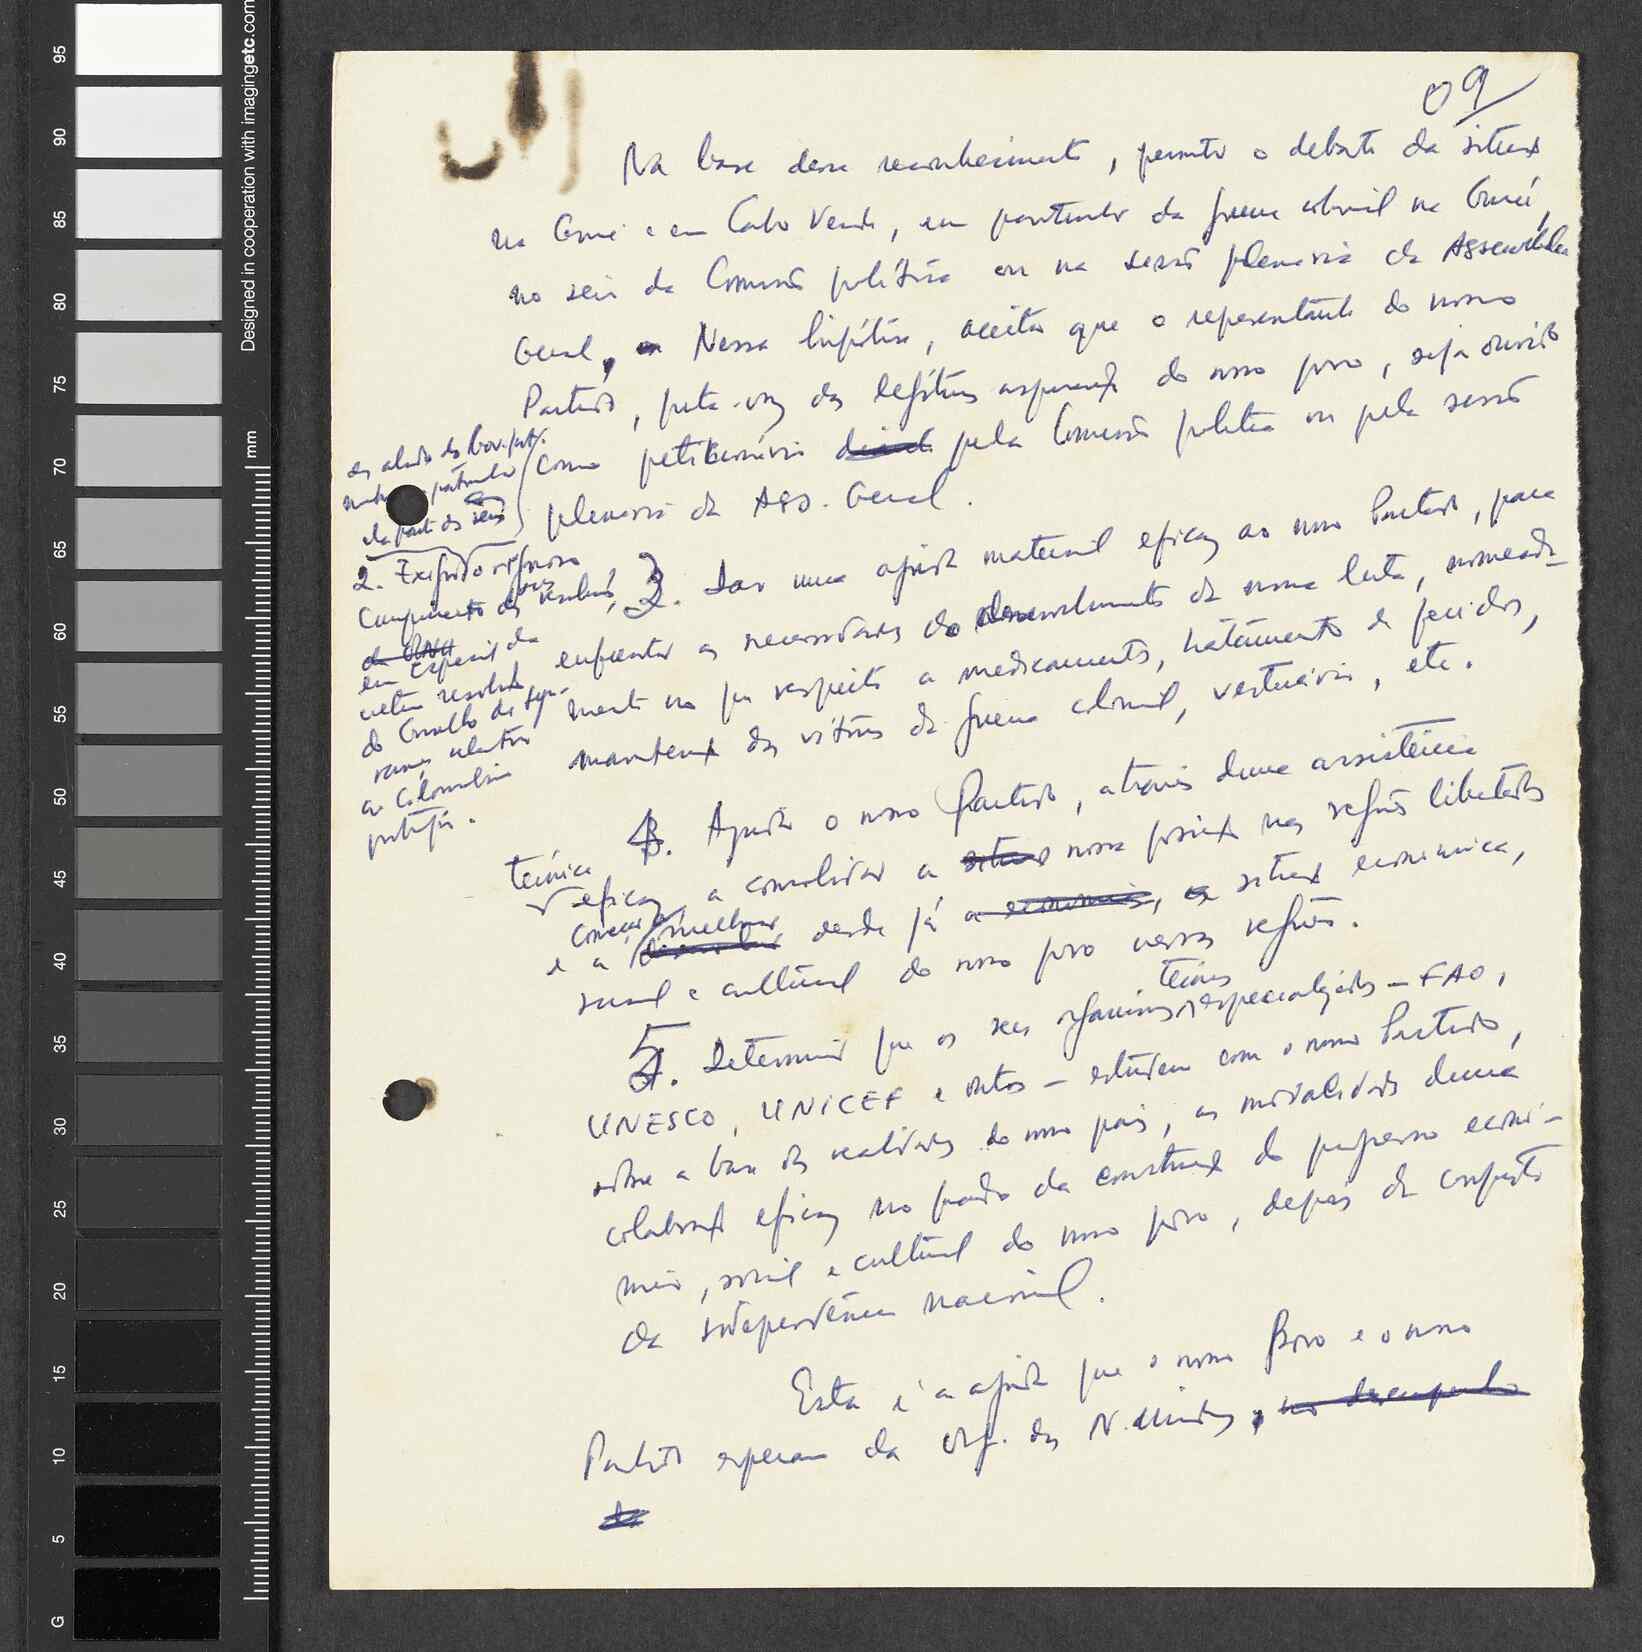 09
Na base desse reconhecimento, permitir o debate da situaç.
na Guiné e em Cabo Verde, em particular da guerra colonial na Guiné,
no seio da Comissão política ou na sessão plenária da Assembleia
Geral, Nessa hipótese, aceitar que o representante do nosso
Partido, porta-voz das legítimas aspiraç. do nosso povo, seja ouvido
como peticionário pela Comissão política ou pela sessão
plenária da Ass. Geral.
ao lado do Gov. port.
da parte dos seus
2. Exigir o rigoroso
Cumprimento das resoluções,
da ONU
em especial da
resoluç.
do Conselho de Segu-
rança, relativa
ao colonialismo
português.
3. Dar uma ajuda material eficaz ao nosso Partido, para
enfrentar as necessidades do desenvolvimento da nossa luta, nomeada-
mente no que respeita a medicamentos, tratamento de feridos,
manutenç. das vítimas da guerra colonial, vestuário, etc.
4. Ajudar o nosso Partido, através duma assistência
técnica
eficaz, a consolidar a nossa posiç. nas regiões libertadas
começar melhorar
e a desde já a economia, a situaç. económica,
social e cultural do nosso povo nessas regiões.
5. Determinar que os seus organismos especializados — FAO,
UNESCO, UNICEF e outros — estudem com o nosso Partido,
sobre a base das realidades do nosso país, as modalidades duma
colaboraç. eficaz no quadro da construç. do progresso econó-
mico, social e cultural do nosso povo, depois da conquista
da independência nacional.
Esta é a ajuda que o nosso Povo e o nosso
Partido esperam da Org. das N. Unidas, no desempenho
Designed in cooperation with imagingetc.com
mm
95
90
85
80
75
70
65
60
55
50
45
40
35
30
25
20
15
10
5
G